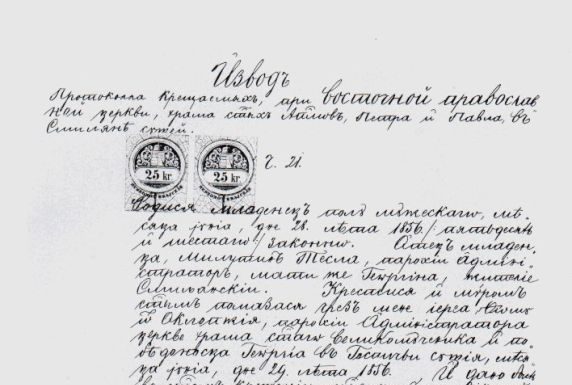 Изводъ
Протокола Крещаемыхъ, при восточной православ
ной церкви, храма стыхъ Апловъ, Петра и Павла, въ
Смилянѣ сущей.
25 kr. 25 kr.
Ч. 21.
Родися младенецъ полꙋ мꙋжескагѡ, мѣ
сяца јунїа, дне 28. лѣта 1856 / пятьдесятъ
и шестагѡ / законно. Отецъ младен
ца, Милутинъ Тесла, парохїи Админи
страторъ, мати же Георгина, жителе
Смилянскїи. Крестися и мѵромъ
стымъ помазася чрезъ мене іереа,
парохїи Администратора
церкве храма стаго великомꙋченика и по
бѣдоносца Георгїа въ Госпићи сꙋщїа, мѣся
ца јунїа, дне 24. лѣта 1856. И даю